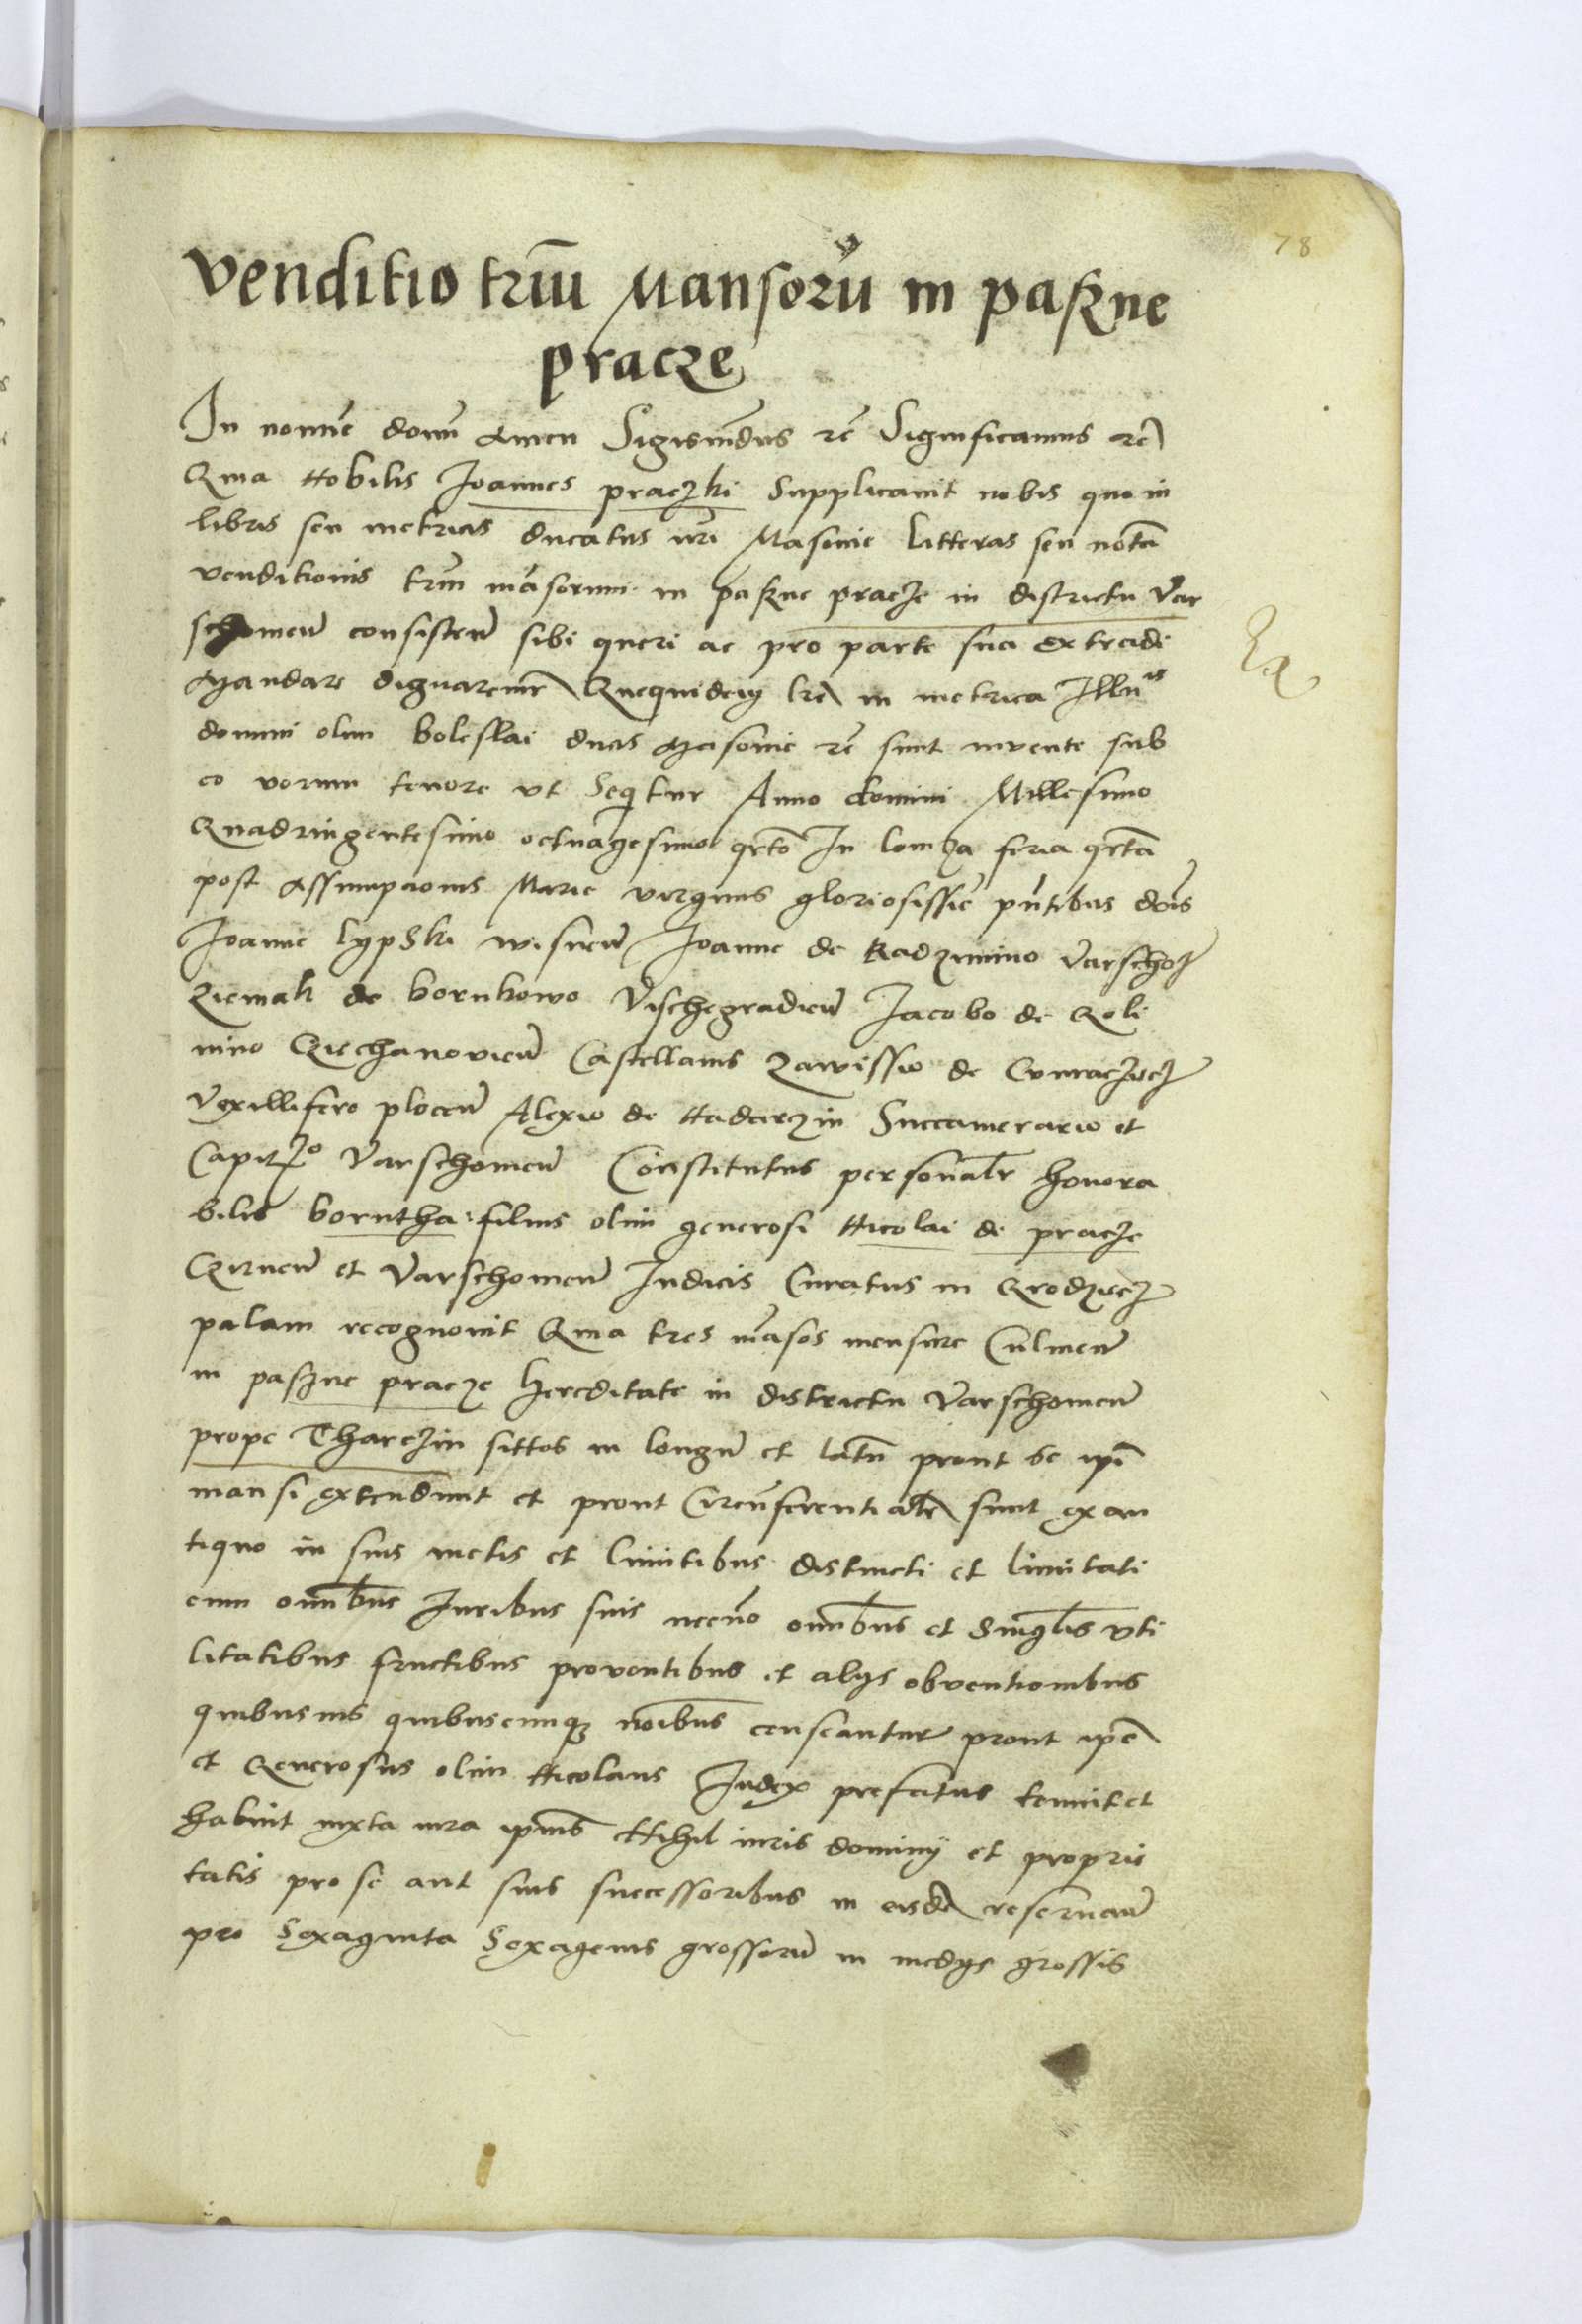 78
Venditio triū Mansorū in paſzne
pracze
In nomīe domī Amen Sigismūdus rē Significamus rē
Qma Nobilis Joannes praczki Supplicavit nobis quo in
libris seu metricis ducatus nrī Masovie litteras seu notā
venditionis triū māsorum in paſzne pracze in districtu Var
schovieñ consisteñ sibi queri ac pro parte sua extradi
Mandare dignaremr Quequidem lre in metrica Illuis
domini olim boleslai ducis Masovie rē sunt invente sub
eo verum tenore ut Sequitur Anno domini Millesimo
Quadringentesimo octuagesimo qrto In lomza feria qrta
post Assumpcionis Marie virginis gloriosissīe pñtibus dñis
Joanne lypski wisneñ Joanne de Radzimino Varschoz
Ziemak de bornkowo Vischegradieñ Jacobo de Goli
mino Cziechanovieñ Castellanis Zawissio de Cunraczicz
Vexillifero ploceñ Alexio de Nadarzin Succamerario et
Capitzo Varschovieñ Constitutus personalr honora
bilis borutha filius olim generosi Nicolai de pracze
Czirneñ et Varschovieñ Judicis Curatus in Grodziecz
palam recognovit Qma tres māsos mensure Culmeñ
in paszne pracze Hereditate in districtu Varschovieñ
prope Tharczin sittos in longū et latū prout se ipī
mansi extendunt et prout Circūferentialr sunt ex an
tiquo in suis metis et limitibus distincti et limitati
cum omībus Juribus suis necnō omībus et singlis uti
litatibus fructibus proventibus et alys obventionibus
quibusvis quibuscumqz noībus censeantur prout ipe
et Generosus olim Nicolaus Judex prefatus tenuit et
habuit iuxta iura ipius Nihil iuris dominy et proprie
tatis pro se aut suis successoribus in eisdē reservañ
pro Sexaginta Sexagenis grossorū in medys grossis